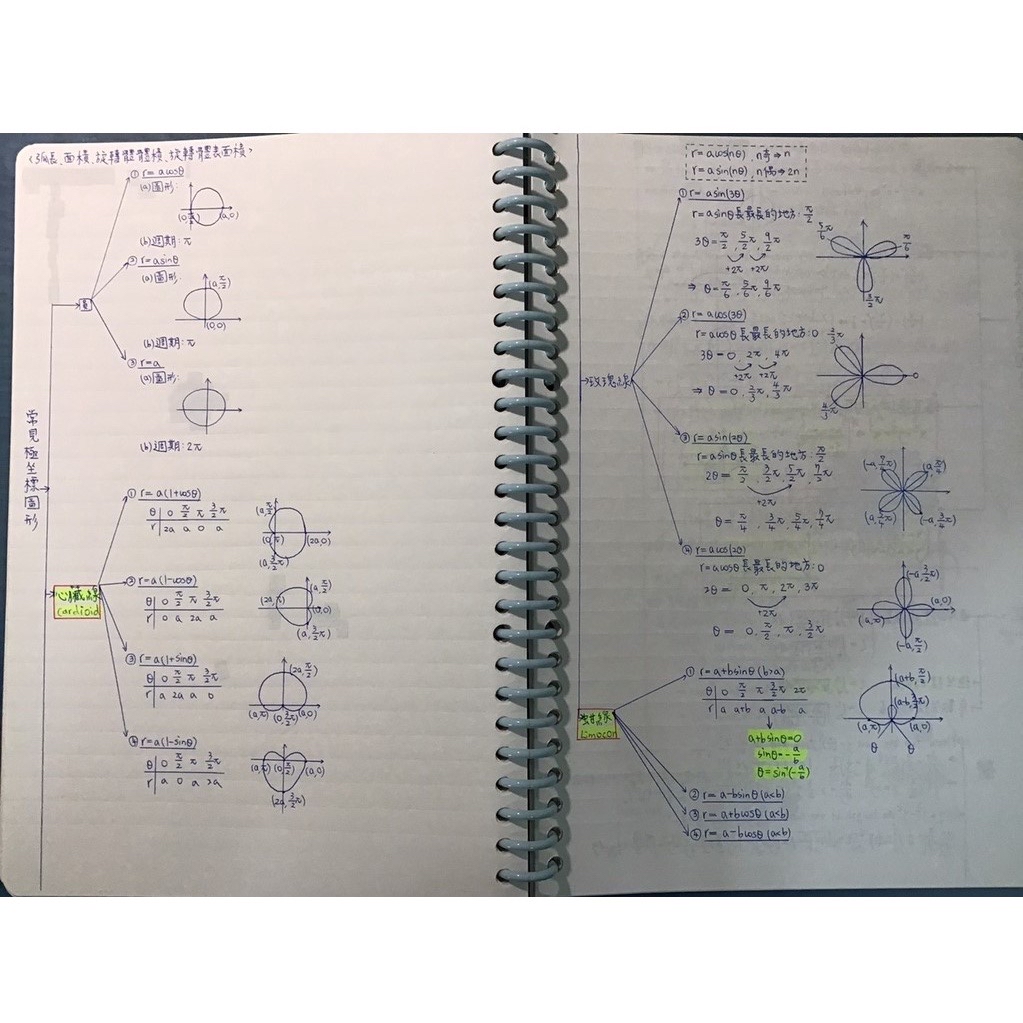 <弧長、面積、旋轉體體積、旋轉體表面積>
常見極坐標圖形
圓
① r=acosθ
(a)圖形:
(0,π/2) (a,0)
(b)週期:π
② r=asinθ
(a)圖形:
(a,π/2)
(0,0)
(b)週期:π
③ r=a
(a)圖形:
(b)週期:2π
心臟線
cardioid
① r=a(1+cosθ)
θ 0 π/2 π 3/2π
r 2a a 0 a
(a,π/2)
(0,π) (2a,0)
(a,3/2π)
② r=a(1-cosθ)
θ 0 π/2 π 3/2π
r 0 a 2a a
(a,π/2)
(2a,π) (0,0)
(a,3/2π)
③ r=a(1+sinθ)
θ 0 π/2 π 3/2π
r a 2a a 0
(2a,π/2)
(a,π) (0,3/2π) (a,0)
④ r=a(1-sinθ)
θ 0 π/2 π 3/2π
r a 0 a 2a
(a,π) (0,π/2) (a,0)
(2a,3/2π)
r=acos(nθ), n奇⇒n
r=asin(nθ), n偶⇒2n
玫瑰線
① r=asin(3θ)
r=asinθ長最長的地方:π/2
3θ=π/2, 5/2π, 9/2π
+2π +2π
⇒ θ=π/6, 5/6π, 9/6π
5/6π π/6
3/2π
② r=acos(3θ)
r=acosθ長最長的地方:0
3θ=0, 2π, 4π
+2π +2π
⇒ θ=0, 2/3π, 4/3π
2/3π
0
4/3π
③ r=asin(2θ)
r=asinθ長最長的地方:π/2
2θ=π/2, 3/2π, 5/2π, 7/2π
+2π
θ=π/4, 3/4π, 5/4π, 7/4π
(-a,7/4π) (a,π/4)
(a,5/4π) (-a,3/4π)
④ r=acos(2θ)
r=acosθ長最長的地方:0
2θ=0, π, 2π, 3π
+2π
θ=0, π/2, π, 3/2π
(-a,3/2π)
(a,π) (a,0)
(-a,π/2)
蚶線
Limacon
① r=a+bsinθ(b>a)
θ 0 π/2 π 3/2π 2π
r a a+b a a-b a
a+bsinθ=0
sinθ=-a/b
θ=sin⁻¹(-a/b)
(a+b,π/2)
(a-b,3/2π)
(a,π) (a,0)
θ θ
② r=a-bsinθ(a<b)
③ r=a+bcosθ(a<b)
④ r=a-bcosθ(a<b)